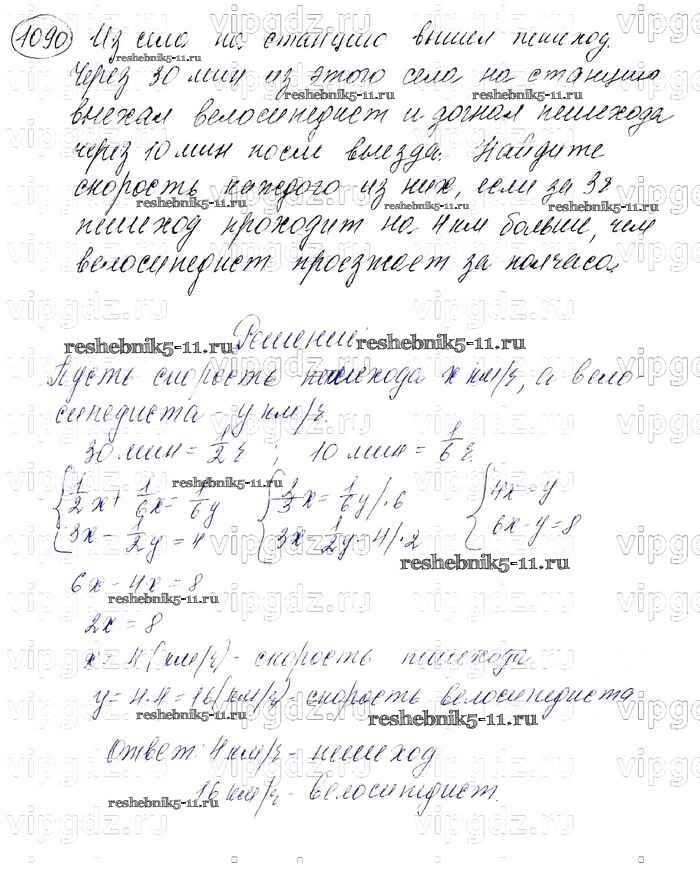 1090 Из села на станцию вышел пешеход.
Через 30 мин из этого села на станцию
выехал велосипедист и догнал пешехода
через 10 мин после выезда. Найдите
скорость каждого из них, если за 3ч
пешеход проходит на 4 км больше, чем
велосипедист проезжает за полчаса.
Решение
Пусть скорость пешехода x км/ч, а вело-
сипедиста - y км/ч.
30 мин = 1/2 ч ; 10 мин = 1/6 ч.
{ 1/2 x + 1/6 x = 1/6 y { 2/3 x = 1/6 y |·6 { 4x = y
3x - 1/2 y = 4 3x - 1/2 y = 4 |·2 6x - y = 8
6x - 4x = 8
2x = 8
x = 4 (км/ч) - скорость пешехода
y = 4·4 = 16 (км/ч) - скорость велосипедиста
Ответ: 4 км/ч - пешеход
16 км/ч - велосипедист.
vipgdz.ru
reshebnik5-11.ru